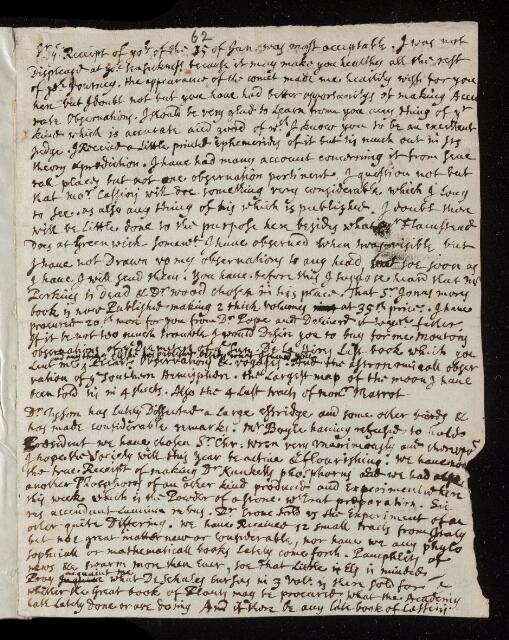 62
Sr. ye. Receipt of yors of the 15 of Jan. was most acceptable. I was not
Displeasd at yr seasickness because it may make you healthy all the rest
of yor Journey. the appearance of the comet made me heartily wish for you
here but I doubt not but you have had better opportunitys of making Accu
rate observations. I should be very glad to Learn from you any thing of yt
kind which is accurate and good of wch I know you to be an excellent
Judge. I Received a Little printed Ephemerides of it but tis much out in Its
theory & prediction. I have had many account concerning it from seve
rall places but not one observation pertinent. I question not but
that Monr. Cassini will doe something very considerable which I Long
to see. as also any thing of his which is published. I doubt there
will be Little done to the purpose here besides what Mr Flamstead
Does at Greenwich somewt I have observed when twas visible but
I have not Drawn up my observations to any head but soe soon as
I have I will send them. You have before this I suppose heard that Mr
Perkins is Dead & Dr wood chosen in his place. That Sr. Jonas mores
book is now Published making 2 thick volumes at 35sh price. I have
procured 20sh more for you from Dr. Pope and Delivered it to your father.
If it be not too much trouble I would desire you to buy for me Moutons
observations diametrorum &c. De Cassinis Last book which you
Lent me, & Picards And the Astronomicall obser
vation of ye Southern Hemisphere. the Largest map of the moon I have
been told tis in 4 sheets. Also the 4 Last tracts of monr. Mariot
Dr. Tyson has Lately Dissected a Large estridge. and some other birds &
has made considerable remarks. Mr Boyle having refused to hold
President we have chosen Sr. Chr. Wren very Unanimously and therefore
I hope the Society will this year be active & flourishing. We have now
the true Receipt of making Dr. Kunkells phosphorus and we had
another Phosphorus of an other kind produced and Experimented here
this week which is the Powder of a stone without preparation. Sic
res accendent Lumina rebus. Dr. Crone told us the experiment of an
other quite Differing. We have Received 12 small tracts from Italy
but noe great matter new or considerable, nor have we any philo
sophicall or mathematicall books Lately come forth. Pamphlets of
news &c swarm more then ever, soe that Little is Els is minded.
Pray acquaint me what De Schales cursus in 3 vol: is there sold for &
whether the Great book of Plants may be procured what the Academy
hath Lately done or are doing And if there be any Late book of Cassini